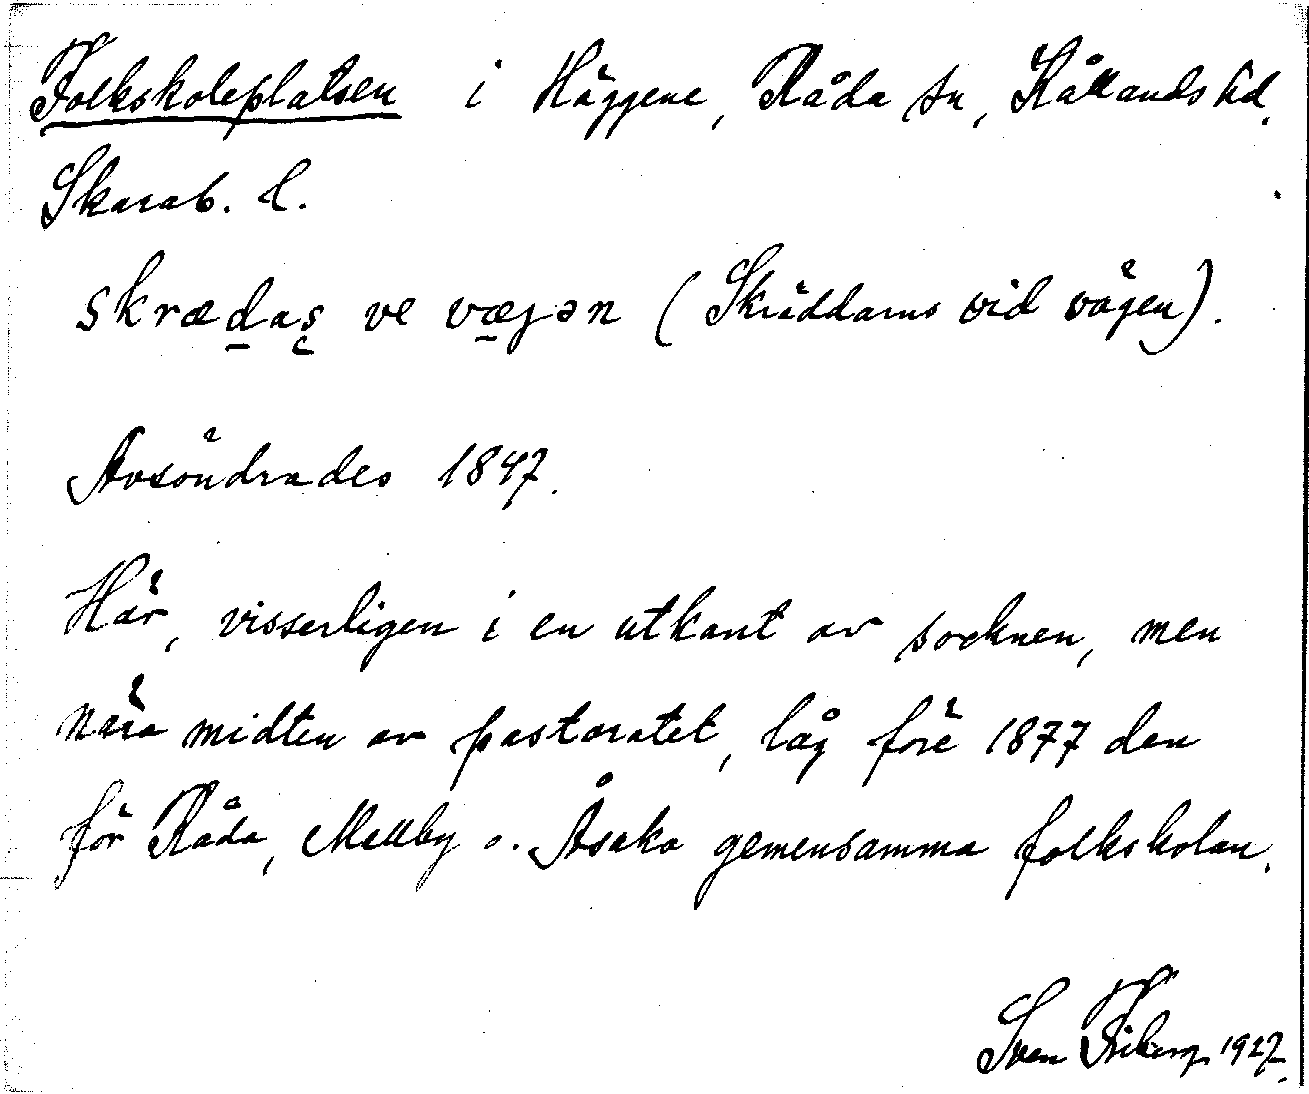 Folkskoleplatsen i Häggene, Råda sn, Kållands hd.
Skarab. l.
skrædas ve vægən (Skräddarns vid vägen).
Avsöndrades 1847.
Här, visserligen i en utkant av socknen, men
nära midten av pastoratet, låg före 1877 den
för Råda, Mellby o. Åsaka gemensamma folkskolan.
Sven Friberg 1927.